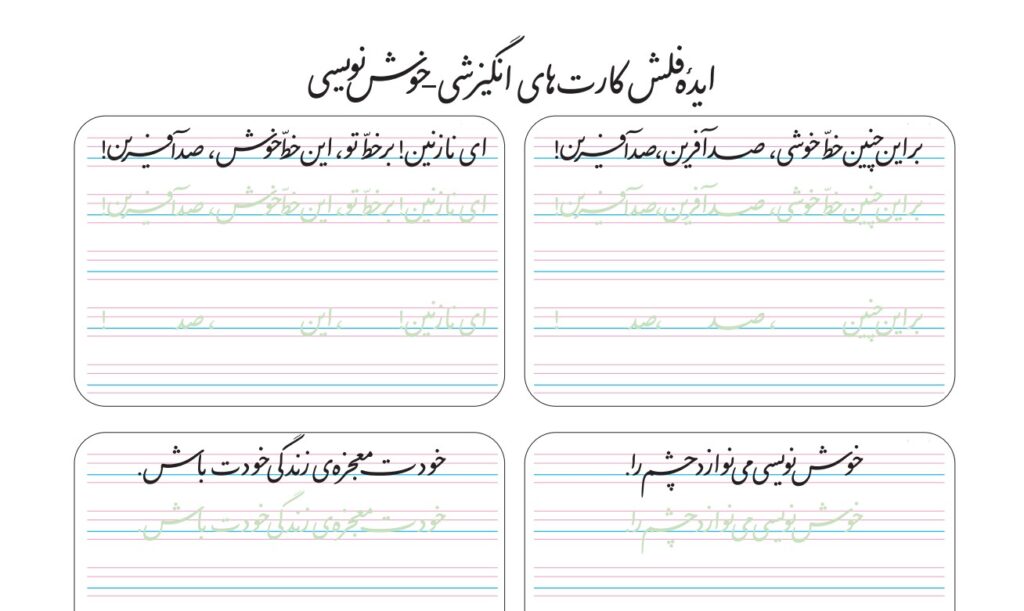 ایدهٔ فلش کارت‌های انگیزشی_خوش‌نویسی
بر این چنین خطّ خوشی، صد آفرین، صد آفرین!
بر این چنین خطّ خوشی، صد آفرین، صد آفرین!
بر این چنین ، صد ،صد !
ای نازنین! بر خطّ تو، این خطّ خوش، صد آفرین!
ای نازنین! بر خطّ تو، این خطّ خوش، صد آفرین!
ای نازنین! ، این ، صد !
خوش‌نویسی می‌نوازد چشم را.
خوش‌نویسی می‌نوازد چشم را.
خودت معجزه‌ی زندگی خودت باش.
خودت معجزه‌ی زندگی خودت باش.